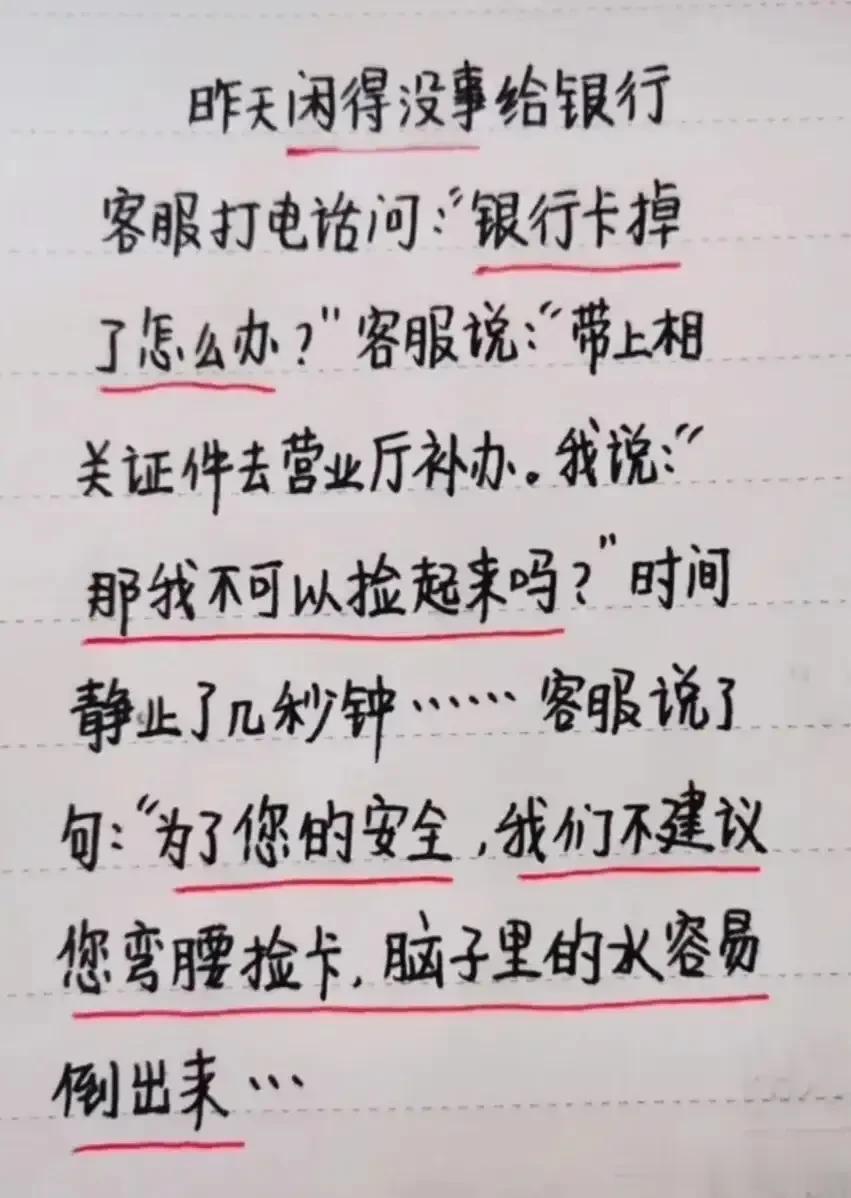 昨天闲得没事给银行
客服打电话问:“银行卡掉
了怎么办?”客服说:“带上相
关证件去营业厅补办。我说:“
那我不可以捡起来吗?”时间
静止了几秒钟……客服说了
句:“为了您的安全,我们不建议
您弯腰捡卡,脑子里的水容易
倒出来…